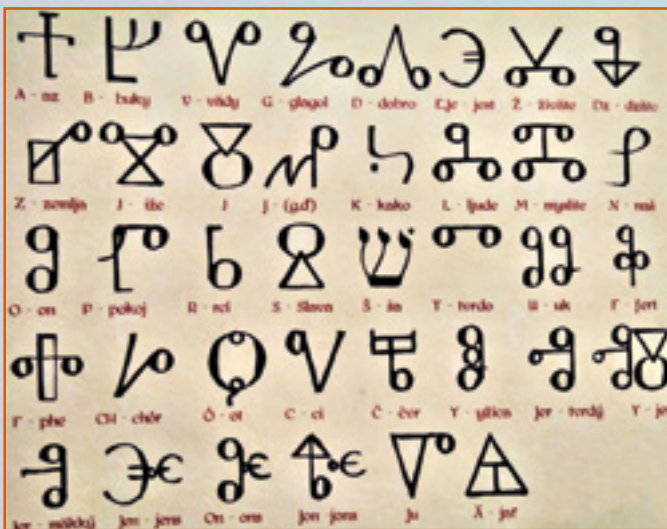 Ⰰ Ⰱ Ⰲ Ⰳ Ⰴ Ⰵ Ⰶ Ⰷ
A - az B - buky V - vědy G - glagol D - dobro E,je - jest Ž - živěte Dz - dzělo
Ⰸ Ⰹ Ⰻ Ⰼ Ⰽ Ⰾ Ⰿ Ⱀ
Z - zemlja I - iže I J - (g,d') K - kako L - ljude M - myslite N - naš
Ⱁ Ⱂ Ⱃ Ⱄ Ⱎ Ⱅ Ⱆ Ⱇ
O - on P - pokoj R - rci S - Slovo Š - ša T - tvrdo U - uk F - fert
Ⱚ Ⱈ Ⱉ Ⱌ Ⱍ Ⱛ Ⱏ ⰟⰋ
F - phe CH - chěr Ó - ot C - ci Č - čer Y - yžica Jer - tvrdý Y - jer
Ⱐ Ⱗ Ⱘ Ⱙ Ⱓ Ⱑ
Jer - měkký Jen - jens On - ons Jon - jons Ju Ä - jať